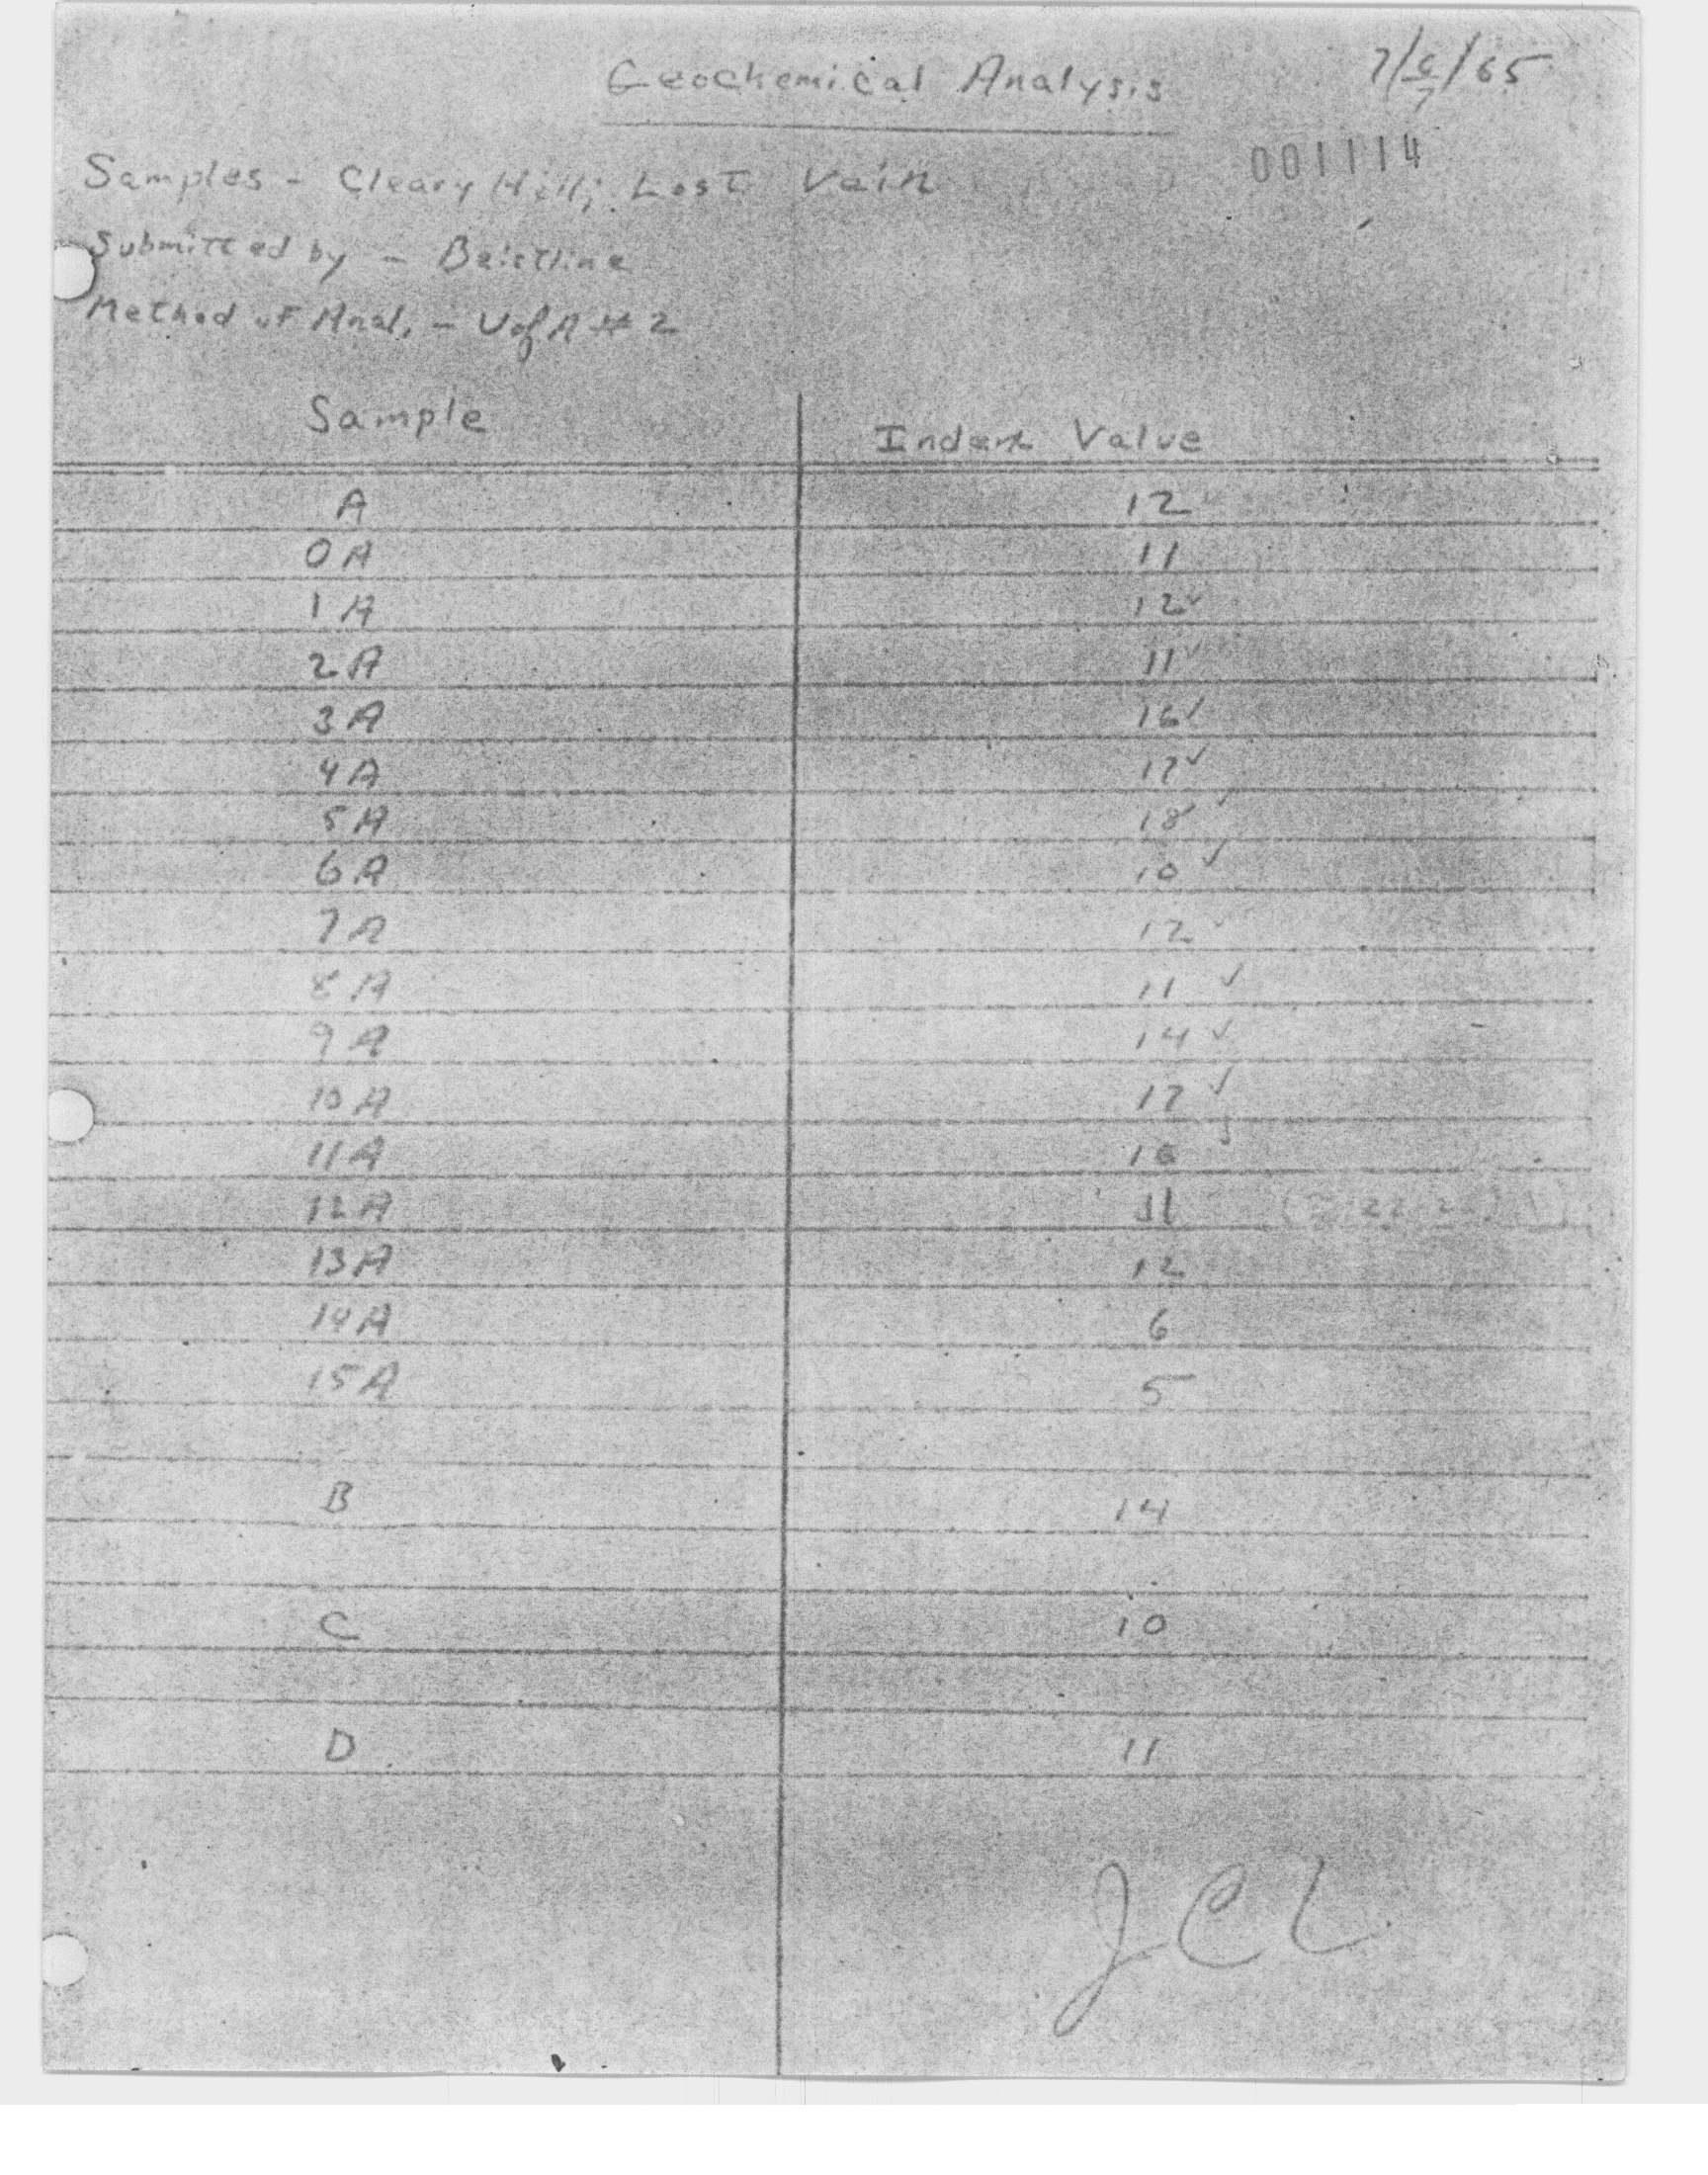 Geochemical Analysis 7/6/65
7
001114
Samples - Cleary Hill; Lost Vein
Submitted by - Beistline
Method of Anal. - U of A # 2
Sample Index Value
A 12
0A 11
1A 12 ✓
2A 11 ✓
3A 16 ✓
4A 17 ✓
5A 18 ✓
6A 10 ✓
7A 12 ✓
8A 11 ✓
9A 14 ✓
10A 17 ✓
11A 16 ✓
12A 11
13A 12
14A 6
15A 5
B 14
C 10
D 11
JCL